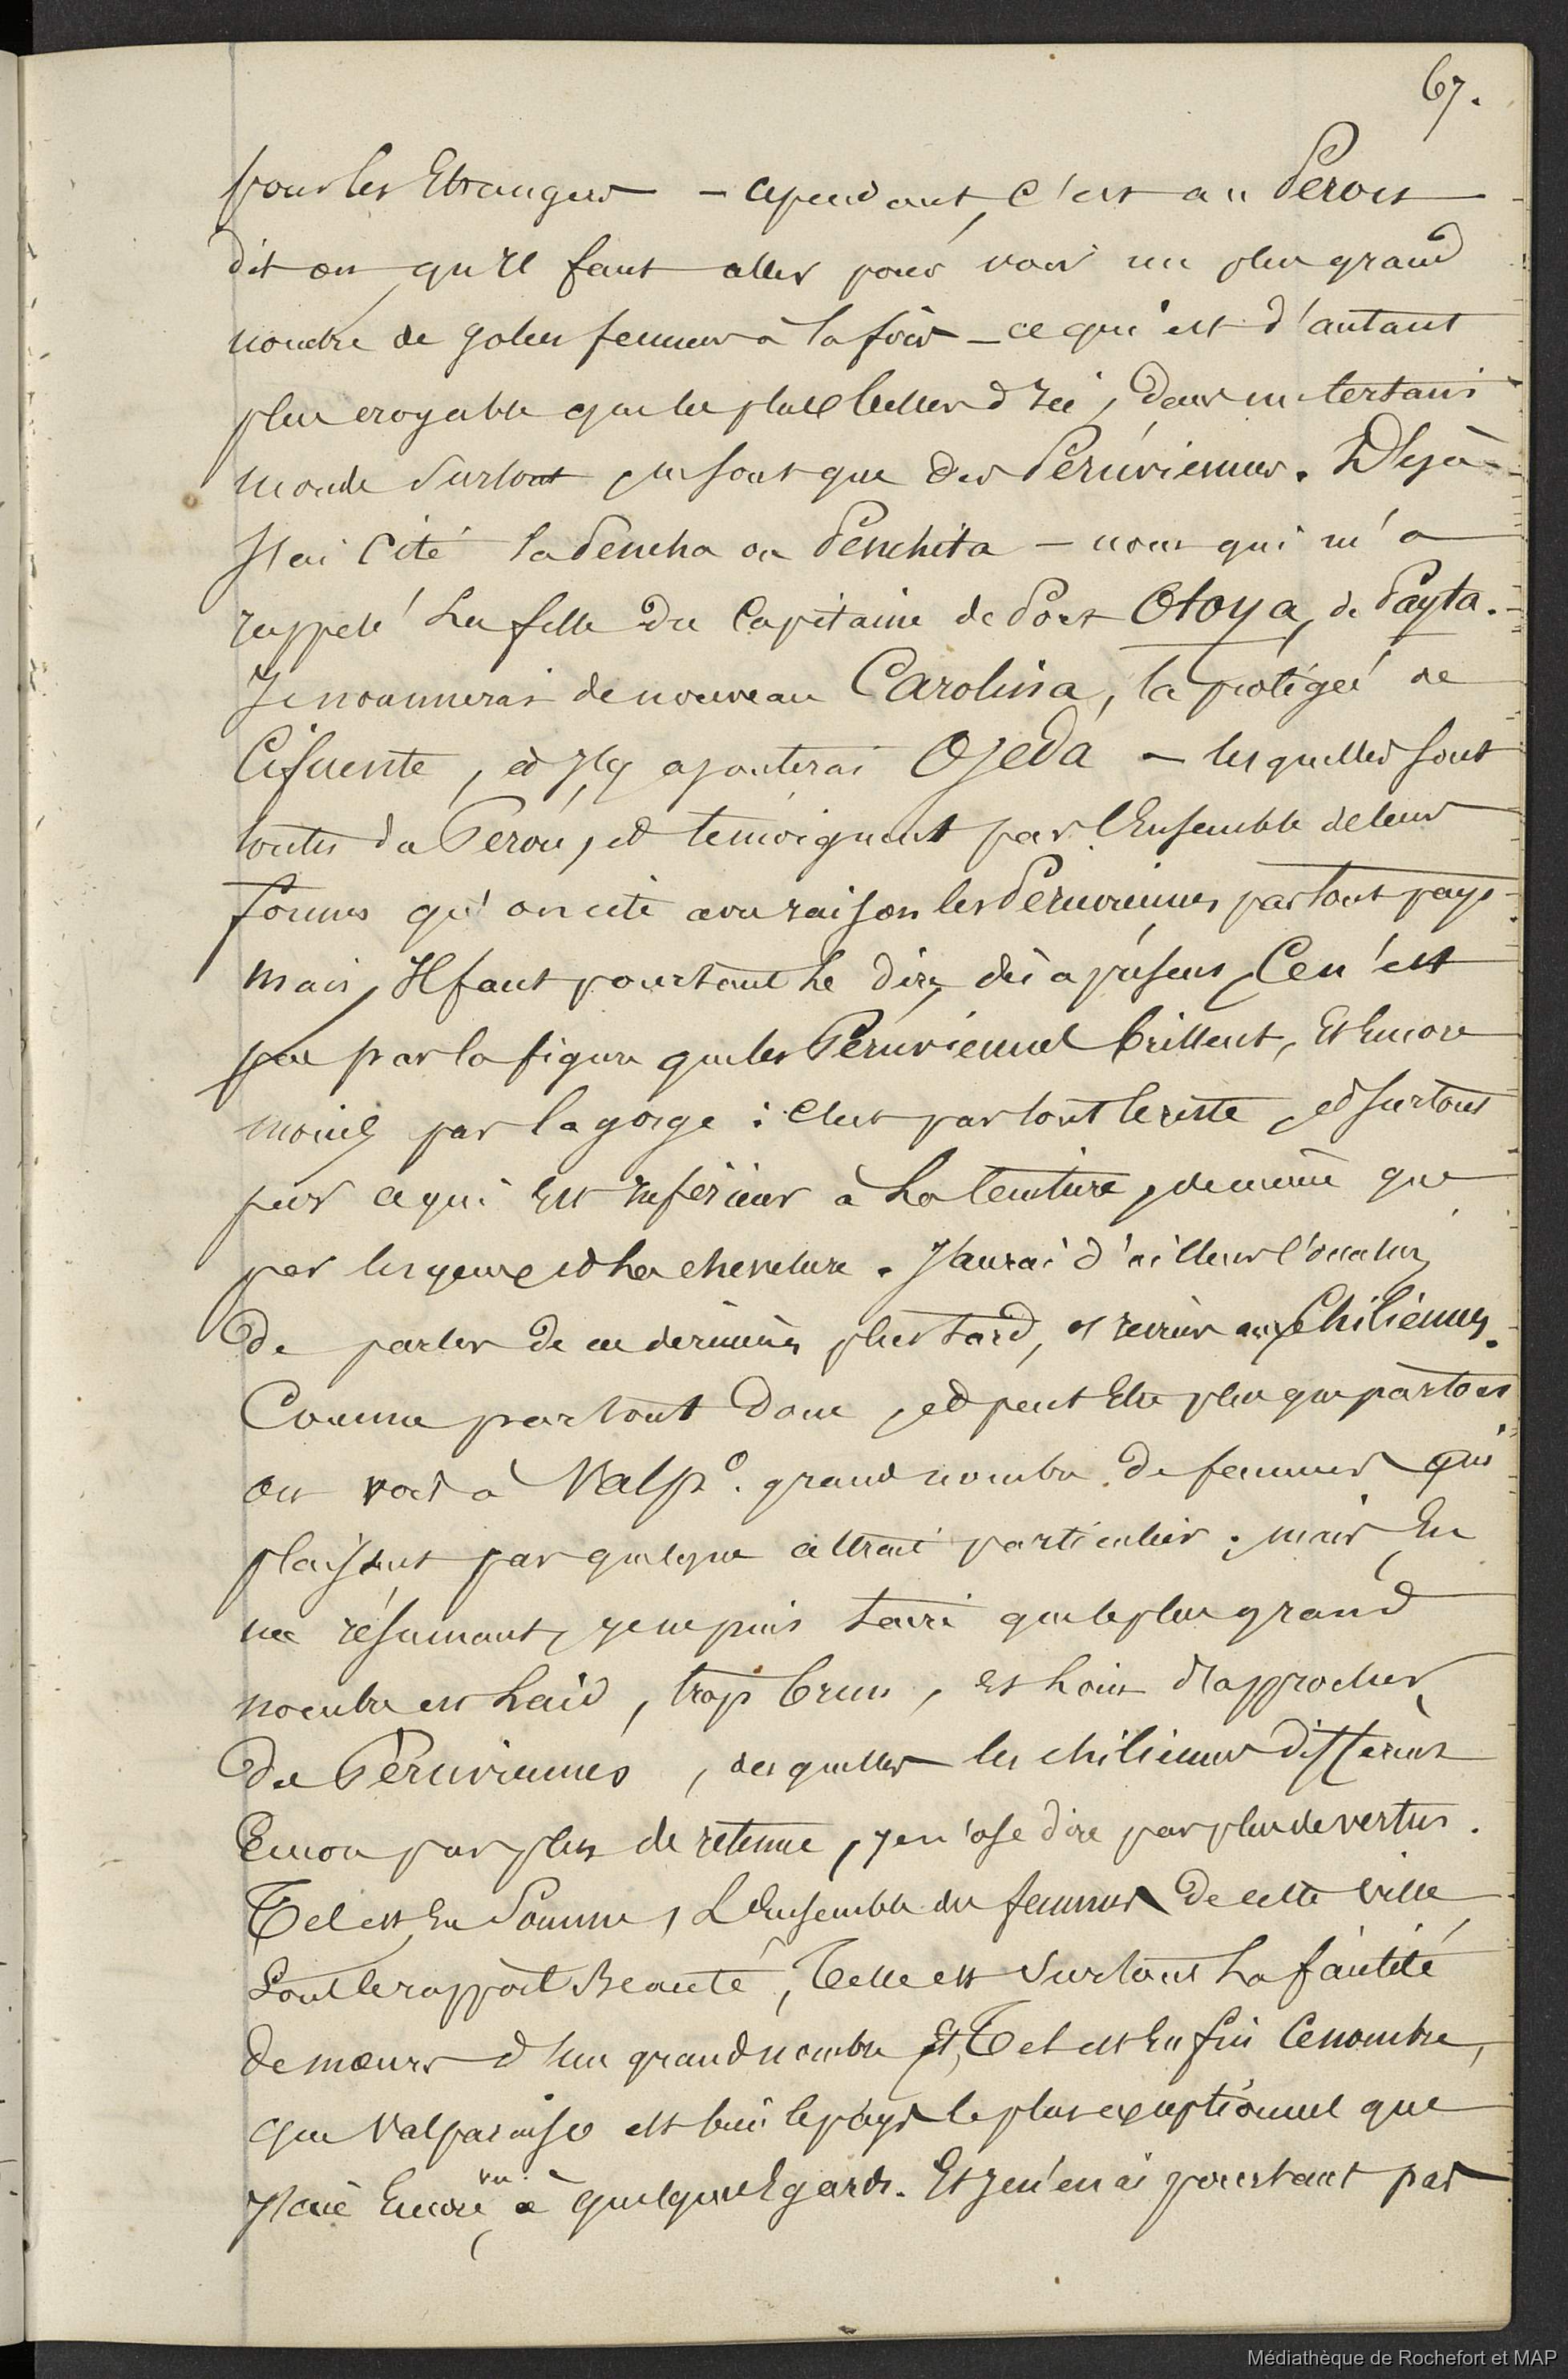 67.
pour les Etrangers — cependant, c'est au Pérou
dit on, qu'il faut aller pour voir un plus grand
nombre de jolies femmes à la fois — ce qui est d'autant
plus croyable que les plus belles d'ici, dans un certain
monde surtout, ne sont que des Péruviennes. Déjà
J'ai cité la Pencha ou Penchita — nom qui m'a
rappelé la fille du Capitaine de Port Otoya, de Payta.
Je nommerai de nouveau Carolina, la protégée de
Cifuente, et J'y ajouterai Ojeda — lesquelles sont
toutes du Pérou, et témoignent par l'Ensemble de leurs
formes qu'on cite avec raison les Péruviennes partout pays
mais, Il faut pourtant le dire, dès à présent, Ce n'est
pas par la figure que les Péruviennes brillent, Et Encore
moins par la gorge : C'est par tout le reste, et surtout
par ce qui Est inférieur à la ceinture, de même que
par les yeux et la chevelure. J'aurai d'ailleurs l'occasion
de parler de ces dernières plus tard, et reviens aux Chiliennes.
Comme partout donc, et peut Etre plus que partout
on voit à Valpº. grand nombre de femmes qui
plaisent par quelque attrait particulier ; mais En
me résumant, je ne puis taire que le plus grand
nombre est laid, trop brun, et loin d'approcher
des Péruviennes, desquelles les chiliennes diffèrent
Encore par plus de retenue, je n'ose dire par plus de vertus.
Tel est En Somme, L'Ensemble des femmes de cette ville
Sous le rapport Beauté, Telle est surtout la facilité
de mœurs d'un grand nombre Et, Tel est Enfin Ce nombre,
que Valparaiso est bien le pays le plus exceptionnel que
J'aie Encore vu à quelques Egards. Et je n'en ai pourtant pas
Médiathèque de Rochefort et MAP